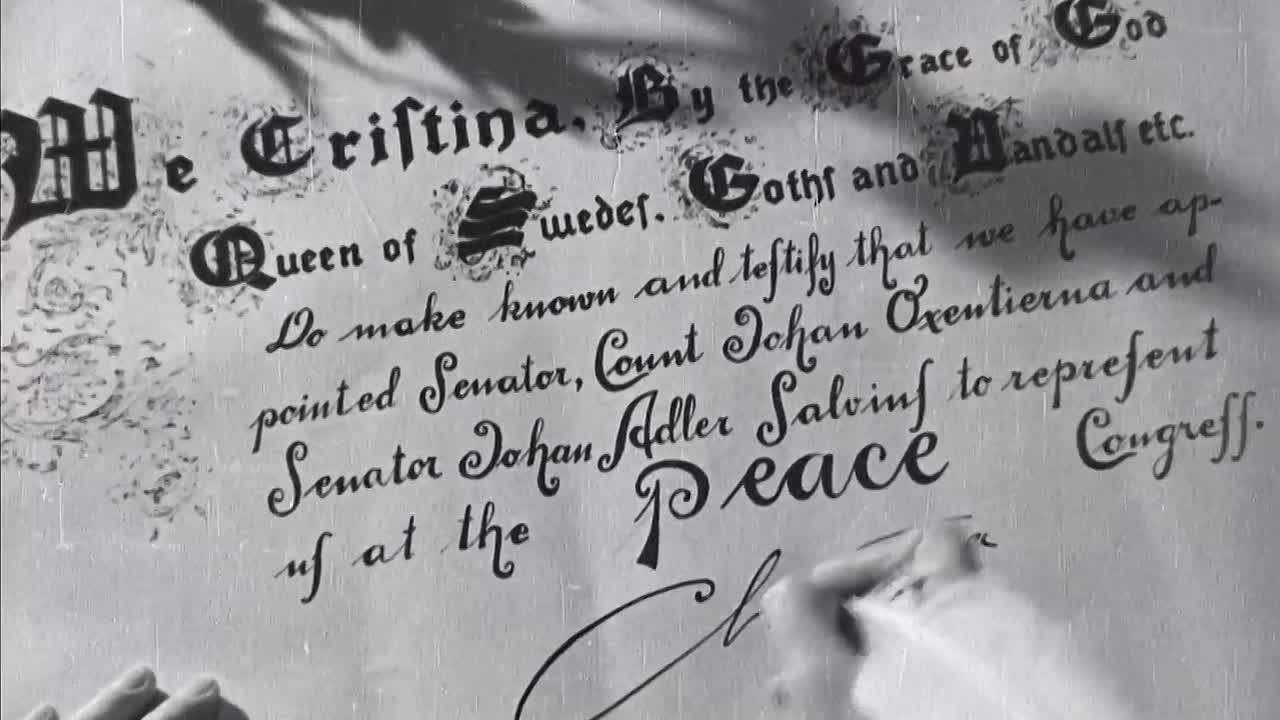 We Criſtina. By the Grace of God
Queen of Swedeſ. Gothſ and Vandalſ etc.
Do make known and teſtify that we have ap-
pointed Senator, Count Johan Oxenſtierna and
Senator Johan Adler Salviuſ to repreſent
uſ at the Peace Congreſſ.